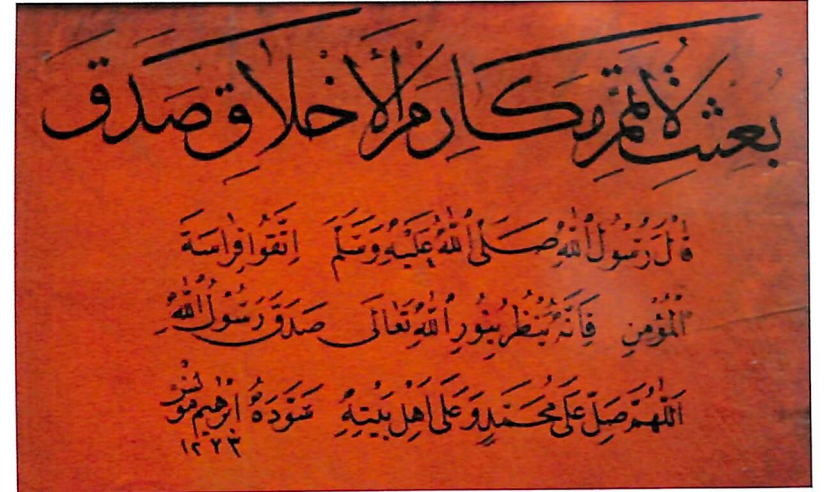 بُعِثْتُ لِأُتَمِّمَ مَكَارِمَ الْأَخْلَاقِ صَدَقَ
قَالَ رَسُولُ اللّٰهِ صَلَّى اللّٰهُ عَلَيْهِ وَسَلَّمَ اِتَّقُوا فِرَاسَةَ
الْمُؤْمِنِ فَاِنَّهُ يَنْظُرُ بِنُورِ اللّٰهِ تَعَالَى صَدَقَ رَسُولُ اللّٰهِ
اَللّٰهُمَّ صَلِّ عَلَى مُحَمَّدٍ وَعَلَى اَهْلِ بَيْتِهِ سَوَّدَهُ اِبْرٰهِيم مونس
١٢٧٣